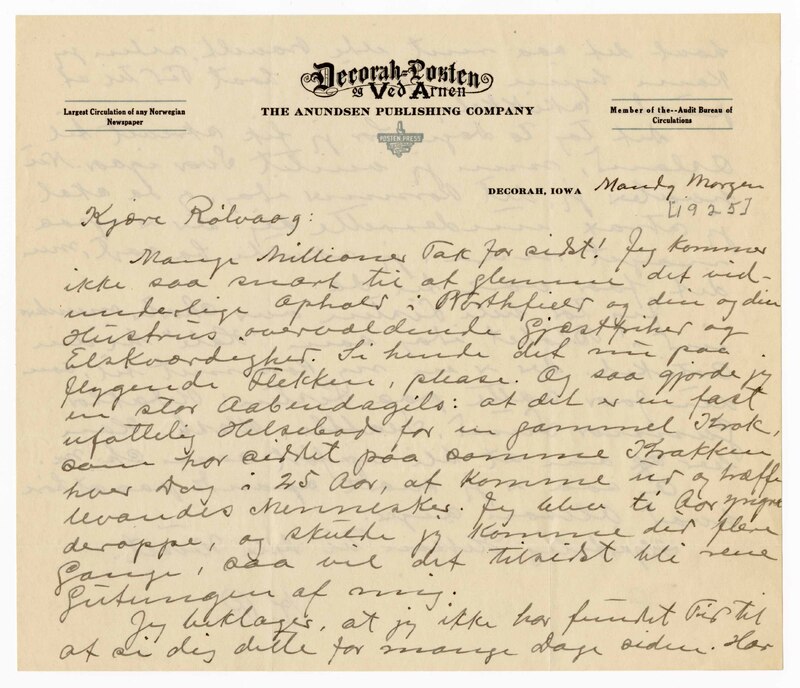 Decorah-Posten
og Ved Arnen
THE ANUNDSEN PUBLISHING COMPANY
Largest Circulation of any Norwegian
Newspaper
Member of the--Audit Bureau of
Circulations
POSTEN PRESS
DECORAH, IOWA Mandg Morgen
[1925]
Kjære Rølvaag:
Mange Millioner Tak for sidst! Jeg kommer
ikke saa snart til at glemme det vid-
underlige Ophold i Northfield og din og din
Hustrus overvældende Gjæstfrihet og
Elskværdeghet. Si hende det nu paa
flygende Flekken, please. Og saa gjorde jeg
en stor Aabendagils: at det er en fast
ufattelig Helsebod for en gammel Krok,
som har siddet paa samme Krakken
hver Dag i 25 Aar, at komme ud og træffe
levandes Mennesker. Jeg blev ti Aar yngre
deroppe, og skulde jeg komme did flere
Gange, saa vil det tilsidst bli rene
Gutungen af mig.
Jeg beklager, at jeg ikke har fundet Tid til
at si dig dette for mange Dage siden. Har